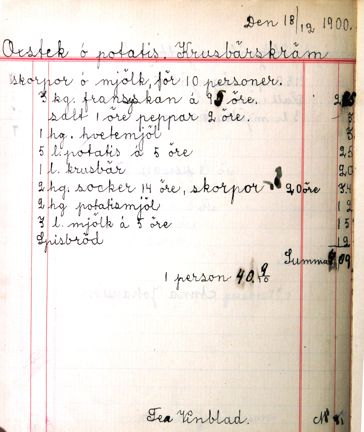 Den 18/12 1900.
Oxstek ó potatis. Krusbärskräm
skorpor ó mjölk, för 10 personer.
3 kg. franskskan á 95 öre. 2 85
salt 1 öre peppar 2 öre. 3
1 hg. hvetemjöl 3
5 l. potatis á 5 öre 25
1 l. krusbär 20
2 hg. socker 14 öre, skorpor 20 öre 34
2 hg potatismjöl 12
3 l. mjölk á 5 öre 15
Spisbröd 12
Summa 4,09
1 person 40,9/10
Tea Vinblad. No